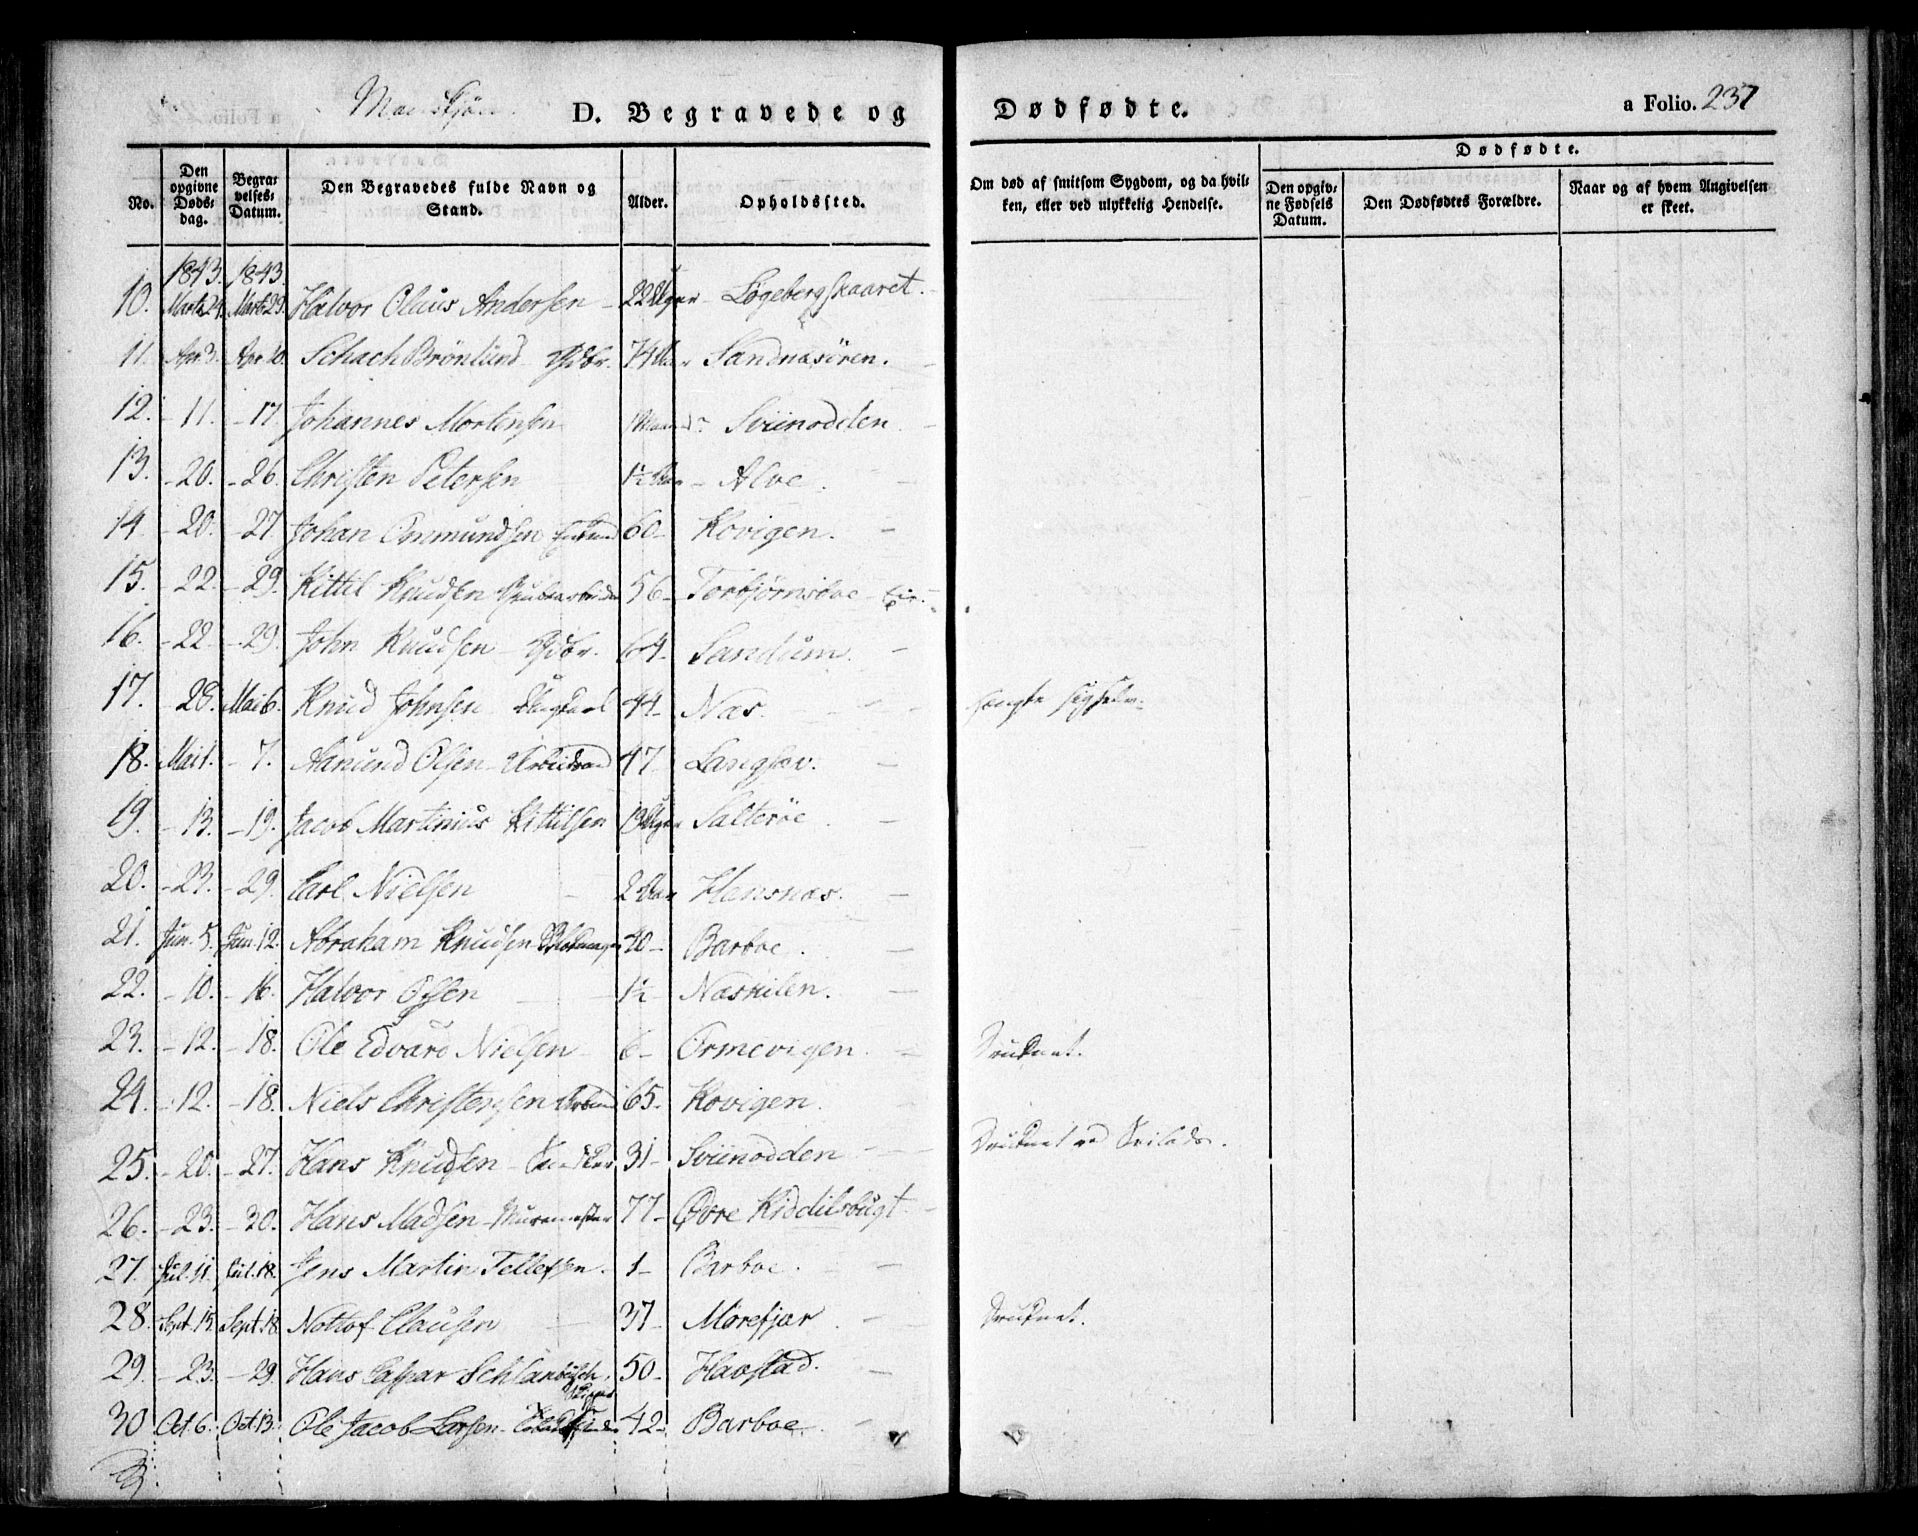 Mandkjøn. D. Begravede og Dødfødte. a Folio. 237
No. Den opgivne Døds-dag. Begravelses-Datum. Den Begravedes fulde Navn og Stand. Alder. Opholdssted. Om død af smitsom Sygdom, og da hvilken, eller ved ulykkelig Hendelse. Dødfødte.
Den opgivne Fødsels Datum. Den Dødfødtes Forældre. Naar og af hvem Angivelsen er skeet.
1843. 1843.
10. Marts 24. Marts 29. Halvor Olaus Andersen 22 Uger Løgebergskaaret.
11. Apr. 3. Apr. 10. Schach Brønlund Gdbr. 74 Aar Sandnæsøren.
12. - 11. - 17. Johannes Mortensen Sviinodden.
13. - 20. - 26. Christen Petersen 1½ Aar Alve.
14. - 20. - 27. Johan Onmundsen 60 Kovigen.
15. - 22. - 29. Kittil Knudsen 56 Torbjørnsboe
16. - 22. - 29. John Knudsen Gdbr. 64 Sandum.
17. - 28. Mai 6. Knud Johnsen 44 Næs. hængte sig selv.
18. Mai 1. - 7. Aanund Olsen 47 Langsæv.
19. - 13. - 19. Jacob Martinius Kittilsen 13 Uger Salterøe.
20. - 23. - 29. Carl Nielsen 2 Aar Hansnæs.
21. Jun. 5. Jun. 12. Abraham Knudsen Blokmager 40 Barboe.
22. - 10. - 16. Halvor Olsen 1½ Næskilen.
23. - 12. - 18. Ole Edvard Nielsen 6 Ormevigen. Druknet.
24. - 12. - 18. Niels Christensen 65 Kovigen.
25. - 20. - 27. Hans Knudsen 31 Sviinodden Druknet ved
26. - 23. - 30. Hans Madsen Muurmester 77 Øvre Kiddilsbugt
27. Jul. 11. Jul. 18. Jens Martin Tellefsen. 1 Barboe.
28. Sept. 15. Sept. 18. Nottof Clausen 37 Mørefjær Druknet.
29. - 23. - 29. Hans Caspar Schlanbusch, 50 Havstad.
30 Oct. 6. Oct. 13. Ole Jacob Larsen 42 Barboe